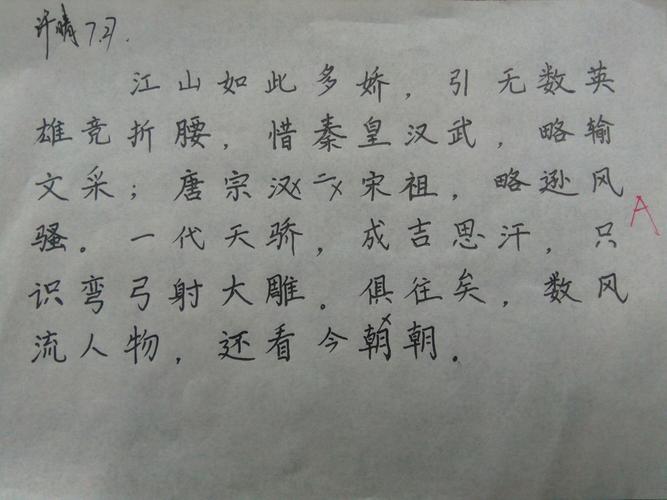 许晴 7.27.
江山如此多娇，引无数英
雄竞折腰，惜秦皇汉武，略输
文采；唐宗汉二宋祖，略逊风
骚。一代天骄，成吉思汗，只
识弯弓射大雕。俱往矣，数风
流人物，还看今朝朝。
A